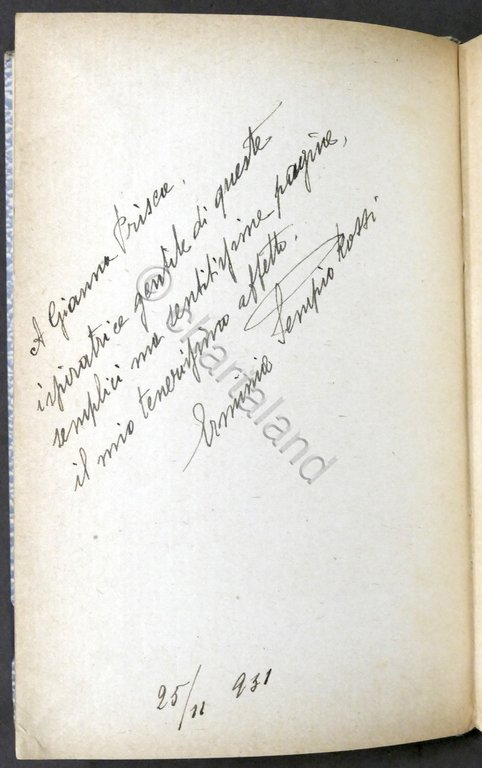 A Gianna Prisco,
ispiratrice gentile di queste
semplici ma sentitissime pagine,
il mio tenerissimo affetto.
Erminia Sempio Rossi
25/11 931
© chartaland